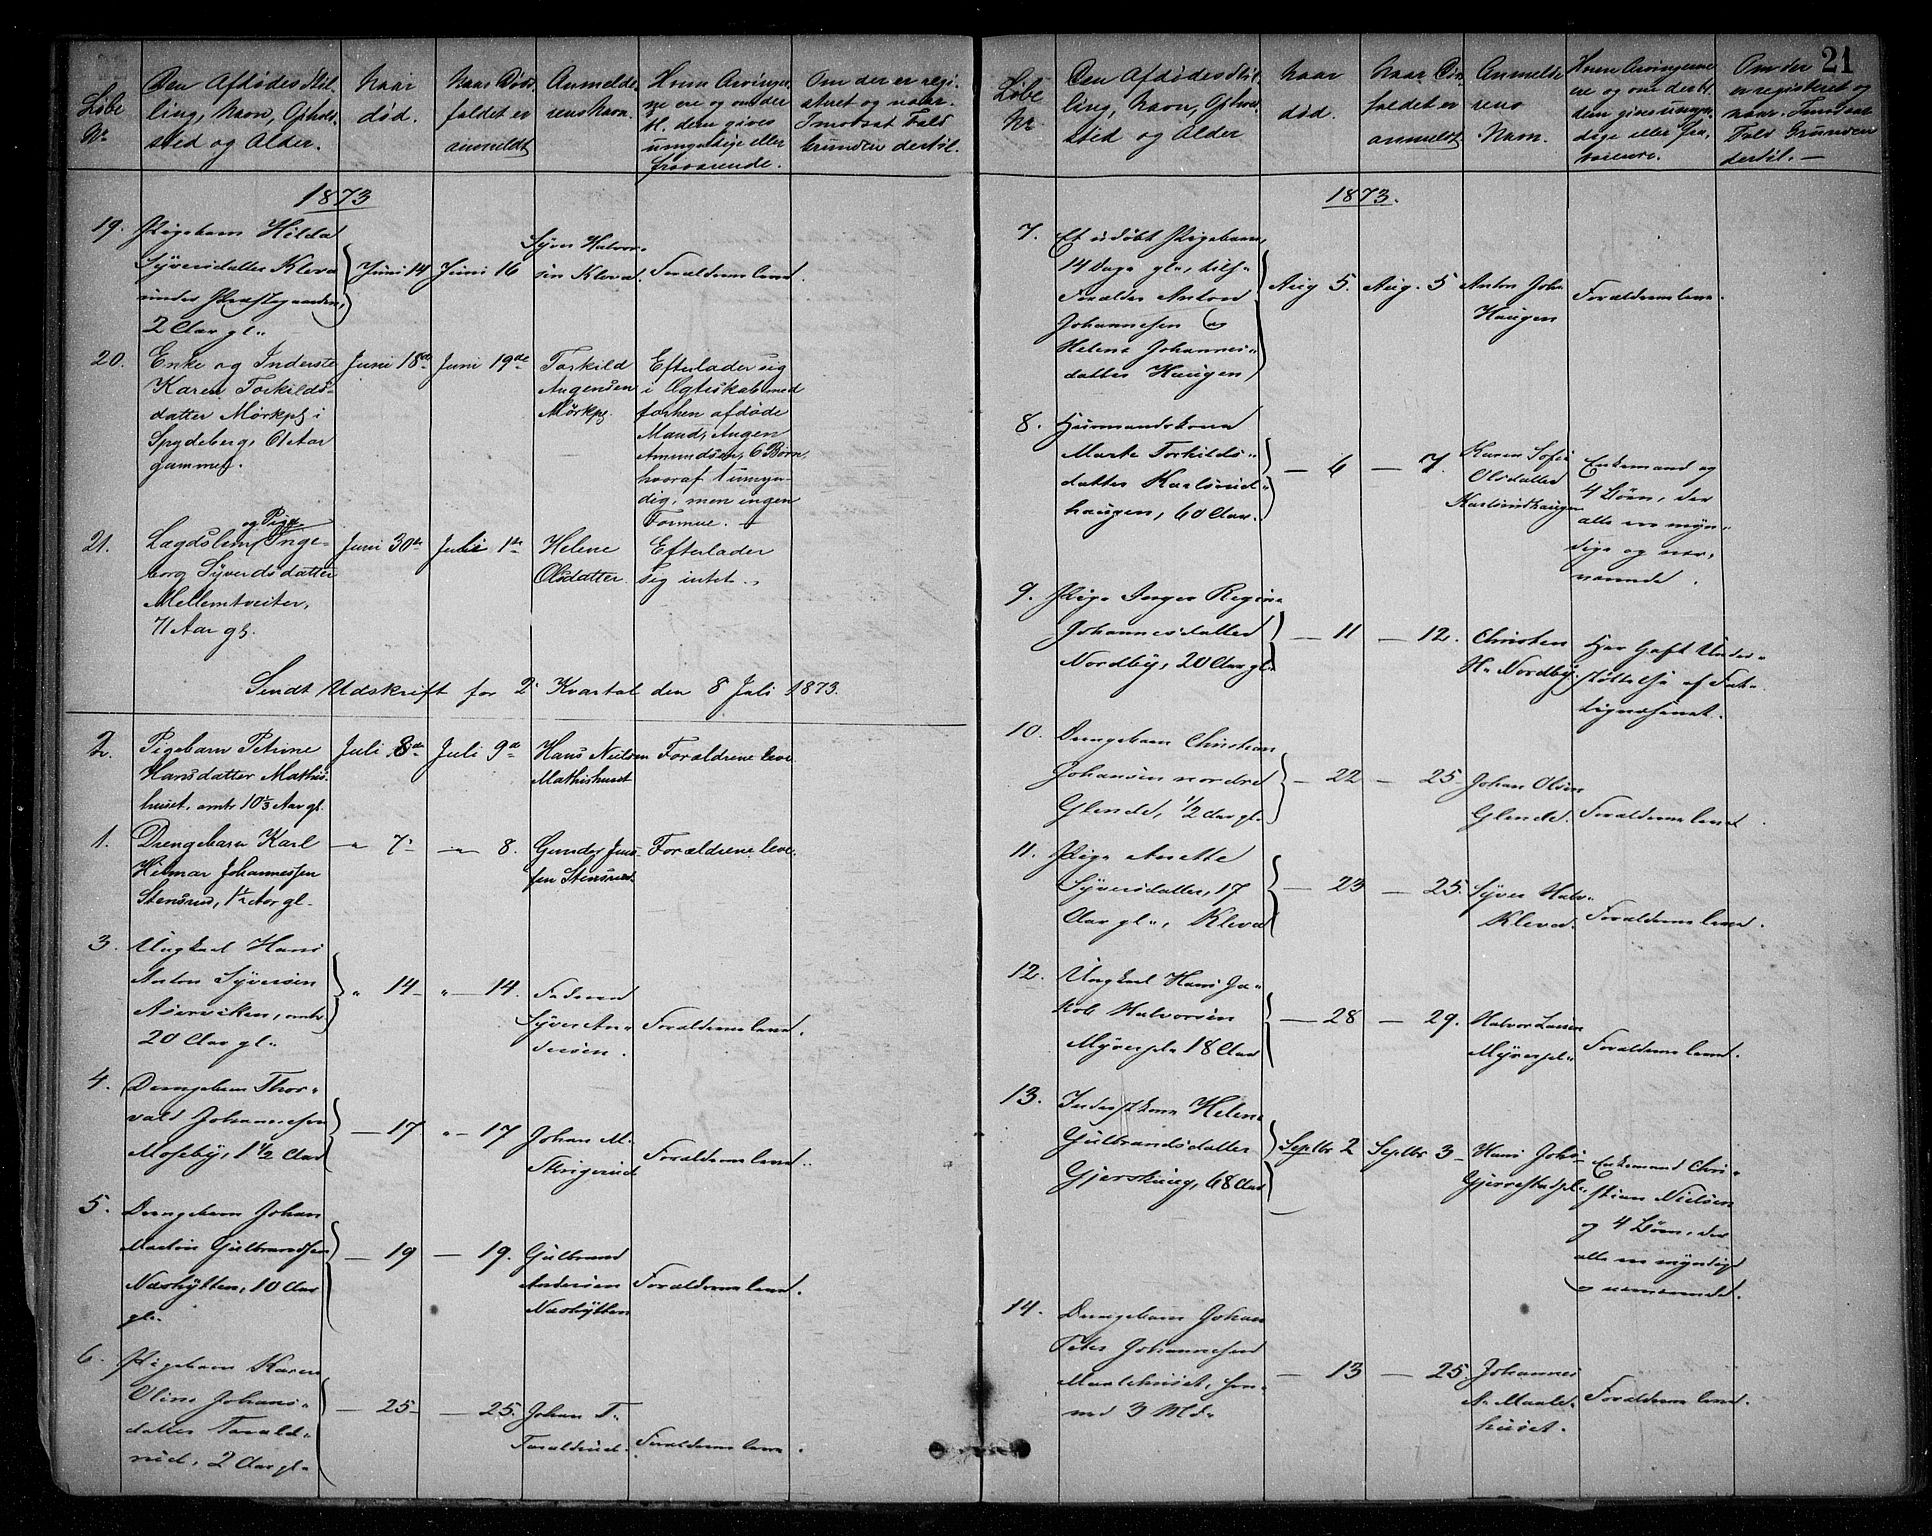 Løbe
Nr
Den Afdødes Stil-
ling, Navn, Opholds-
sted og Alder.
Naar
død.
Naar Døds-
faldet er
anmeldt
Anmelde-
rens Navn.
Hvem Arvinger-
ne ere og om der
bl. dem gives
umyndige eller
fraværende.
Om der er regi-
streret og naar.
I modsat Fald
Grunden dertil.
1873
19. Pigebarn Hilda
Syversdatter Kleva
under Præstegaarden,
2 Aar gl.
Juni 14
Juni 16
Syver Halvor-
sen Kleva.
Forældrene leve.
20. Enke og Inderste
Karen Torkilds-
datter Mørkpl i
Spydeberg, 61 Aar
gammel.
Juni 18de
Juni 19de
Torkild
Augensen
Mørkpl.
Efterlader sig
i Ægteskab med
forhen afdøde
Mand, Augen
Amundsen, 6 Børn,
hvoraf 1 umyn-
dig, men ingen
Formue.
21. Lægdslem og Pige Inge-
borg Syverdsdatter
Mellemtveiter,
71 Aar gl.
Juni 30te
Juli 1te
Helene
Olsdatter.
Efterlader
sig intet.
Sendt Udskrift for 2 Kvartal den 8 Juli 1873.
2. Pigebarn Petrine
Hansdatter Mathis-
huset, omtr 10 1/3 Aar gl.
Juli 8de
Juli 9de
Hans Nielsen
Mathishuset
Forældrene leve.
1. Drengebarn Karl
Hilmar Johannessen
Stensrud, 1 1/2 Aar gl.
— 7
— 8.
Gunder Jens-
sen Stensrud.
Forældrene leve.
3. Ungkarl Hans
Anton Syversen
Aserviken, omtr
20 Aar gl.
" 14
" — 14.
Faderen
Syver An-
dersen.
Forældrene leve.
4. Drengebarn Thor-
vald Johannesen
Moseby, 1 1/2 Aar
— 17
" — 17
Johan M.
Forældrene leve.
5. Drengebarn Johan
Martin Gulbrandsen
Næshytten, 10 Aar
gl.
— 19
— 19.
Gulbrand
Andersen
Næshytten
Forældrene leve.
6. Pigebarn Karen
Oline Johans-
datter Tarald-
rud, 2 Aar gl.
— 25
— 25.
Johan T.
Taraldrud.
Forældrene leve.
21
Løbe
Nr
Den Afdødes Stil-
ling, Navn, Ophold-
sted og Alder
Naar
død.
Naar Døds-
faldet er
anmeldt
Anmelde-
rens
Navn.
Hvem Arvingerne
ere og om der bl.
dem gives umyn-
dige eller fra-
værende.
Om der
er registreret og
naar. I modsat
Fald Grunden
dertil. —
1873.
7. Et udøbt Pigebarn,
14 Dage gl.,
Forældre Anton
Johannesen og
Helene Johannes-
datter Haugen
Aug 5.
Aug. 5
Anton Joh.
Haugen
Forældrene leve.
8. Huusmandskone
Marte Torkilds-
datter Karlsrud-
haugen, 60 Aar.
— 6
— 7.
Karen Sofie
Olsdatter
Karlsrudhaugen
Enkemand og
4 Børn, der
alle ere myn-
dige og nær-
værende.
9. Pige Inger Regine
Johannesdatter
Nordby, 20 Aar gl.
— 11
— 12.
Christen
H. Nordby.
Har havt Under-
støttelse af Fat-
tigvæsenet.
10. Drengebarn Christian
Johansen nordre
Glende, 1/2 Aar gl.
— 22
— 25
Johan Olsen
Glende.
Forældrene leve.
11. Pige Anette
Syversdatter, 17
Aar gl., Kleva
— 23
— 25.
Syver Halv.
Kleva.
Forældrene leve.
12. Ungkarl Hans Ja-
kob Halvorsen
Myrerpl. 18 Aar
— 28
— 29.
Halvor Larsen
Myrerpl.
Forældrene leve.
13. Inderstkone Helene
Gulbrandsdatter
68 Aar
Septbr 2
Septbr 3
Hans Johs.
Enkemand Chri-
stian Nielsen
og 4 Børn, der
alle ere myndige
og nærværende.
14. Drengebarn Johan
Peter Johannesen
Maalehuset,
3 Md.
— 13
— 25.
Johannes
A. Maale-
huset.
Forældrene leve.